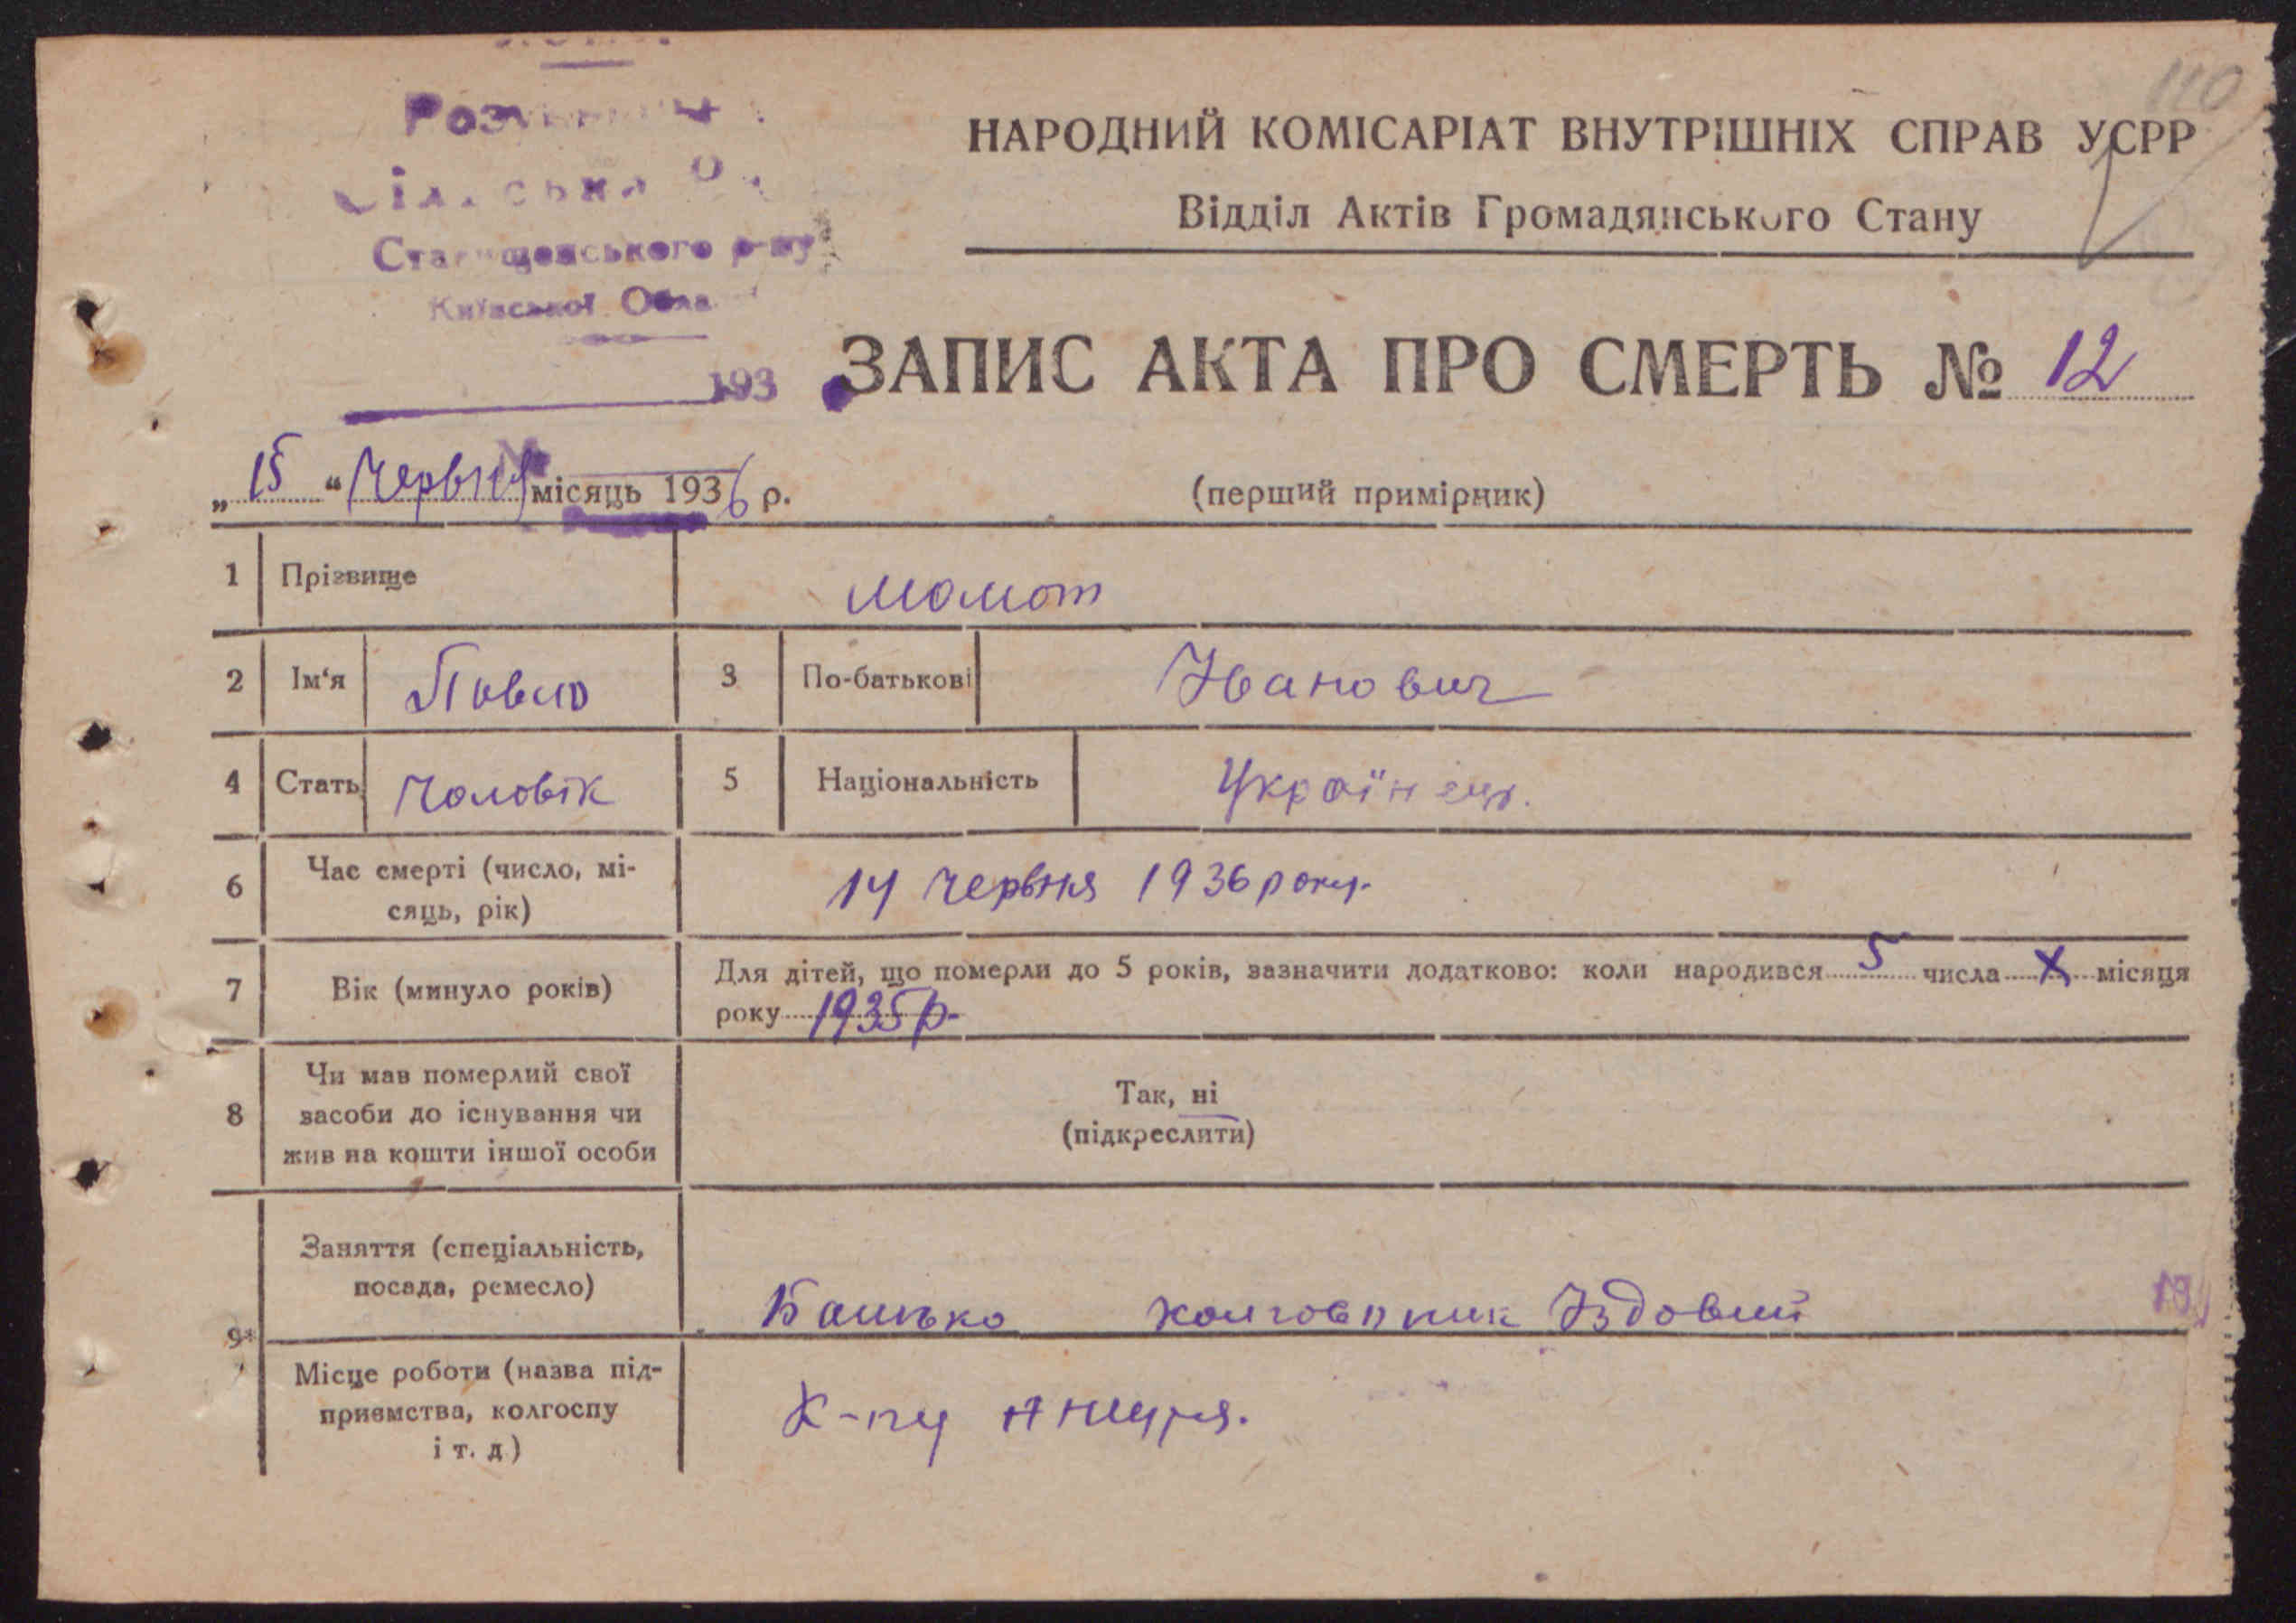 110
НАРОДНИЙ КОМІСАРІАТ ВНУТРІШНІХ СПРАВ УСРР
Відділ Актів Громадянського Стану
Старищенського р-ну
Київської Обла
193
ЗАПИС АКТА ПРО СМЕРТЬ № 12
„15“ Червня місяць 1936 р.
(перший примірник)
1 Прізвище Момот
2 Ім‘я Павло 3 По-батькові Іванович
4 Стать Чоловік 5 Національність Українець.
6 Час смерті (число, мі-
сяць, рік)
14 червня 1936 року.
7 Вік (минуло років) Для дітей, що померли до 5 років, зазначити додатково: коли народився 5 числа X місяця
року 1935 р.
8 Чи мав померлий свої
засоби до існування чи
жив на кошти іншої особи
Так, ні
(підкреслити)
9* Заняття (спеціальність,
посада, ремесло)
Батько колгоспник Їздовий
Місце роботи (назва під-
приємства, колгоспу
і т. д)
К-пу